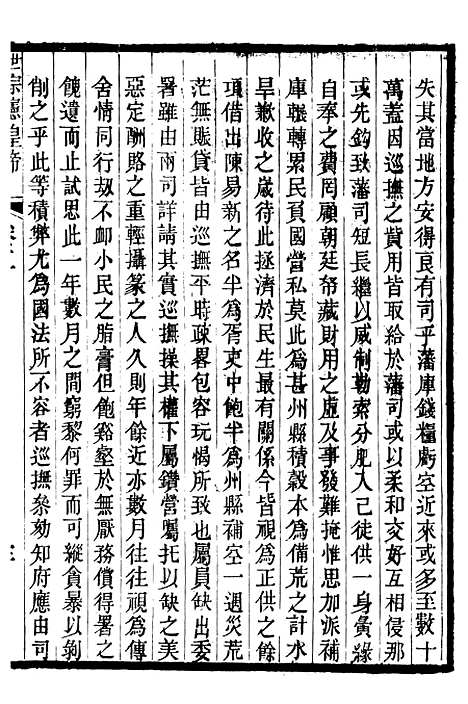 失其當地方安得良有司乎藩庫錢糧虧空近來或多至數十
萬蓋因巡撫之貲用皆取給於藩司或以柔和交好互相侵那
或先鈎致藩司短長繼以威制勒索分肥入己徒供一身夤緣
自奉之費罔顧朝廷帑藏財用之虛及事發難掩惟思加派補
庫輾轉累民負國營私莫此爲甚州縣積穀本爲備荒之計水
旱歉收之歲待此拯濟於民生最有關係今皆視爲正供之餘
項借出陳易新之名半爲胥吏中飽半爲州縣補空一遇災荒
茫無賑貸皆由巡撫平時疎畧包容玩愒所致也屬員缺出委
署雖由兩司詳請其實巡撫操其權下屬鑽營囑托以缺之美
惡定酬賂之重輕攝篆之人久則年餘近亦數月往往視爲傳
舍情同行刼不卹小民之脂膏但飽谿壑於無厭務償得署之
餽遺而止試思此一年數月之間窮黎何罪而可縱貪暴以剝
削之乎此等積弊尤爲國法所不容者巡撫叅劾知府應由司
世宗憲皇帝